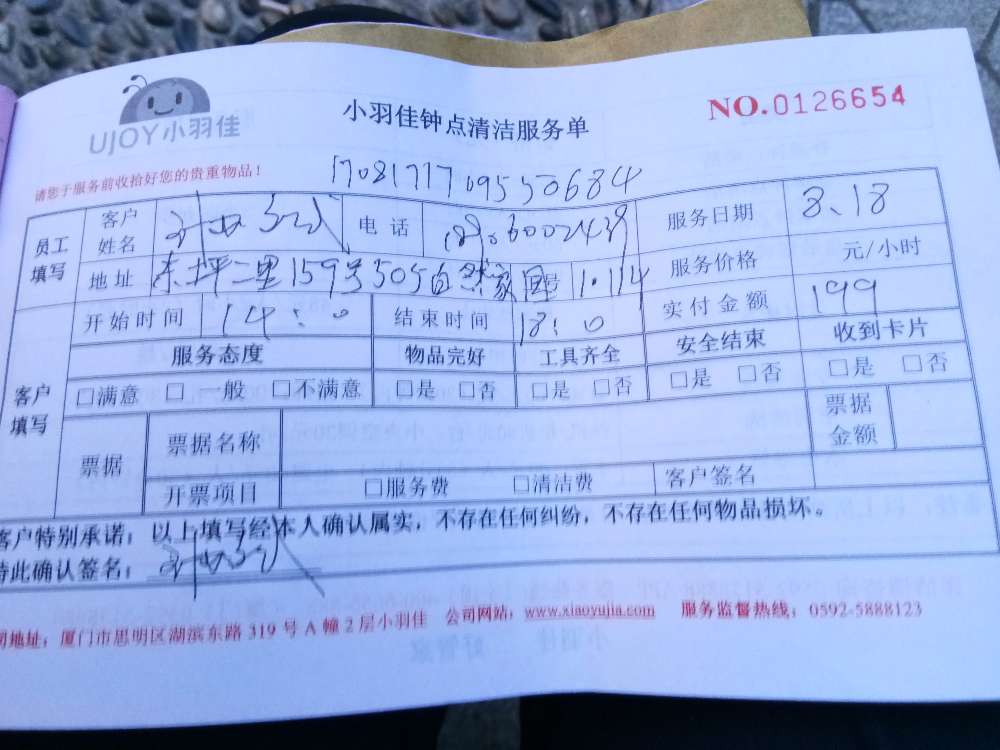 UJOY小羽佳
小羽佳钟点清洁服务单
NO.0126654
请您于服务前收拾好您的贵重物品！
170817177109550684
员工填写 客户姓名 电话 服务日期 8、18
地址 东坪二里159号505自然家园 服务价格 元/小时
开始时间 14:00 结束时间 18:00 实付金额 199
客户填写 服务态度 物品完好 工具齐全 安全结束 收到卡片
□满意 □一般 □不满意 □是 □否 □是 □否 □是 □否 □是 □否
票据 票据名称 票据金额
开票项目 □服务费 □清洁费 客户签名
客户特别承诺：以上填写经本人确认属实，不存在任何纠纷，不存在任何物品损坏。
特此确认签名：
司地址：厦门市思明区湖滨东路 319 号 A 幢 2 层小羽佳 公司网站：www.xiaoyujia.com 服务监督热线：0592-5888123